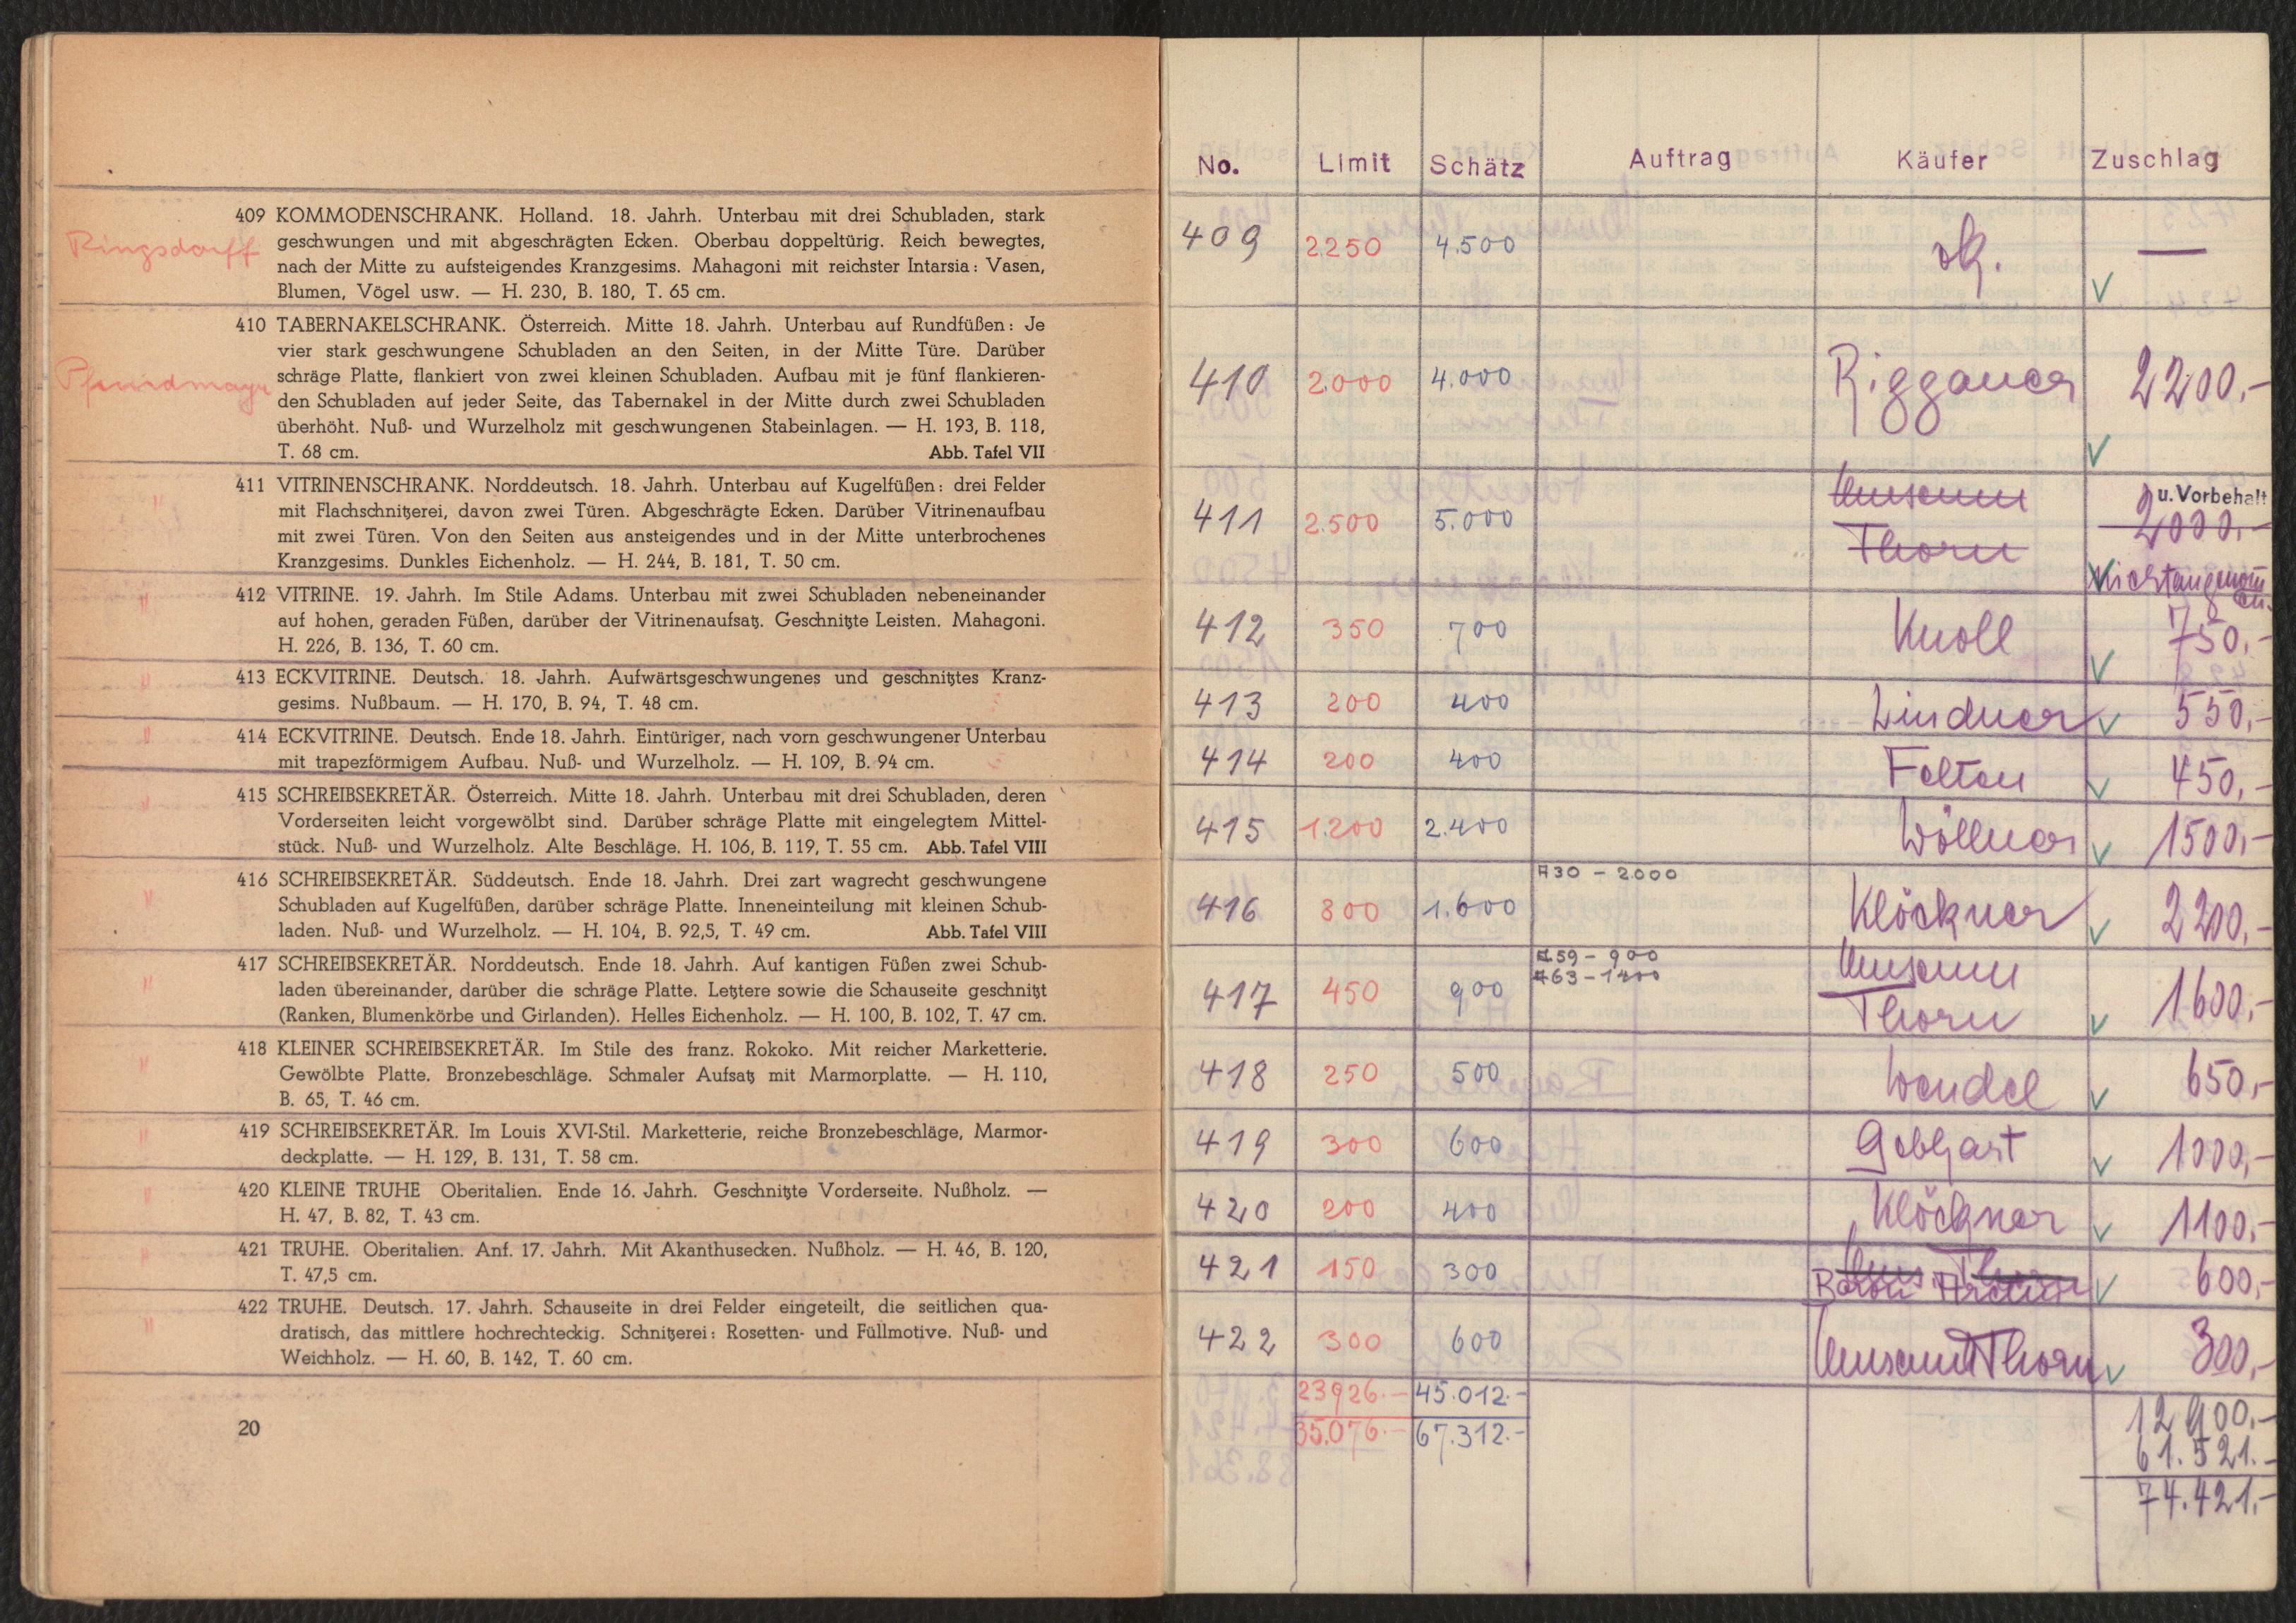 409 KOMMODENSCHRANK. Holland. 18. Jahrh. Unterbau mit drei Schubladen, stark
geschwungen und mit abgeschrägten Ecken. Oberbau doppeltürig. Reich bewegtes,
nach der Mitte zu aufsteigendes Kranzgesims. Mahagoni mit reichster Intarsia: Vasen,
Blumen, Vögel usw. — H. 230, B. 180, T. 65 cm.
Ringsdorff
410 TABERNAKELSCHRANK. Österreich. Mitte 18. Jahrh. Unterbau auf Rundfüßen: Je
vier stark geschwungene Schubladen an den Seiten, in der Mitte Türe. Darüber
schräge Platte, flankiert von zwei kleinen Schubladen. Aufbau mit je fünf flankieren-
den Schubladen auf jeder Seite, das Tabernakel in der Mitte durch zwei Schubladen
überhöht. Nuß- und Wurzelholz mit geschwungenen Stabeinlagen. — H. 193, B. 118,
T. 68 cm. Abb. Tafel VII
411 VITRINENSCHRANK. Norddeutsch. 18. Jahrh. Unterbau auf Kugelfüßen: drei Felder
mit Flachschnitzerei, davon zwei Türen. Abgeschrägte Ecken. Darüber Vitrinenaufbau
mit zwei Türen. Von den Seiten aus ansteigendes und in der Mitte unterbrochenes
Kranzgesims. Dunkles Eichenholz. — H. 244, B. 181, T. 50 cm.
"
412 VITRINE. 19. Jahrh. Im Stile Adams. Unterbau mit zwei Schubladen nebeneinander
auf hohen, geraden Füßen, darüber der Vitrinenaufsatz. Geschnitzte Leisten. Mahagoni.
H. 226, B. 136, T. 60 cm.
"
413 ECKVITRINE. Deutsch. 18. Jahrh. Aufwärtsgeschwungenes und geschnitztes Kranz-
gesims. Nußbaum. — H. 170, B. 94, T. 48 cm.
"
414 ECKVITRINE. Deutsch. Ende 18. Jahrh. Eintüriger, nach vorn geschwungener Unterbau
mit trapezförmigem Aufbau. Nuß- und Wurzelholz. — H. 109, B. 94 cm.
"
415 SCHREIBSEKRETÄR. Österreich. Mitte 18. Jahrh. Unterbau mit drei Schubladen, deren
Vorderseiten leicht vorgewölbt sind. Darüber schräge Platte mit eingelegtem Mittel-
stück. Nuß- und Wurzelholz. Alte Beschläge. H. 106, B. 119, T. 55 cm. Abb. Tafel VIII
"
416 SCHREIBSEKRETÄR. Süddeutsch. Ende 18. Jahrh. Drei zart wagrecht geschwungene
Schubladen auf Kugelfüßen, darüber schräge Platte. Inneneinteilung mit kleinen Schub-
laden. Nuß- und Wurzelholz. — H. 104, B. 92,5, T. 49 cm. Abb. Tafel VIII
"
417 SCHREIBSEKRETÄR. Norddeutsch. Ende 18. Jahrh. Auf kantigen Füßen zwei Schub-
laden übereinander, darüber die schräge Platte. Letztere sowie die Schauseite geschnitzt
(Ranken, Blumenkörbe und Girlanden). Helles Eichenholz. — H. 100, B. 102, T. 47 cm.
"
418 KLEINER SCHREIBSEKRETÄR. Im Stile des franz. Rokoko. Mit reicher Marketterie.
Gewölbte Platte. Bronzebeschläge. Schmaler Aufsatz mit Marmorplatte. — H. 110,
B. 65, T. 46 cm.
"
419 SCHREIBSEKRETÄR. Im Louis XVI-Stil. Marketterie, reiche Bronzebeschläge, Marmor-
deckplatte. — H. 129, B. 131, T. 58 cm.
"
420 KLEINE TRUHE Oberitalien. Ende 16. Jahrh. Geschnitzte Vorderseite. Nußholz. —
H. 47, B. 82, T. 43 cm.
"
421 TRUHE. Oberitalien. Anf. 17. Jahrh. Mit Akanthusecken. Nußholz. — H. 46, B. 120,
T. 47,5 cm.
"
422 TRUHE. Deutsch. 17. Jahrh. Schauseite in drei Felder eingeteilt, die seitlichen qua-
dratisch, das mittlere hochrechteckig. Schnitzerei: Rosetten- und Füllmotive. Nuß- und
Weichholz. — H. 60, B. 142, T. 60 cm.
"
20
No. Limit Schätz Auftrag Käufer Zuschlag
409 2250 4.500 —
410 2.000 4.000 Riggauer 2200,-
411 2.500 5.000 Museum Thorn u. Vorbehalt 2000,-
Nicht angenommen.
412 350 700 Knoll 750,-
413 200 400 Lindner 550,-
414 200 400 Felten 450,-
415 1.200 2.400 Wöllner 1500,-
416 800 1.600 730 - 2000 Klöckner 2200,-
417 450 900 459 - 900 Museum
463 - 1400 Thorn 1600,-
418 250 500 Wendel 650,-
419 300 600 Gebhart 1000,-
420 200 400 Klöckner 1100,-
421 150 300 600,-
422 300 600 Museum Thorn 300,-
23926.- 45.012.- 12900,-
35.076.- 67.312.- 61.521.-
74.421.-